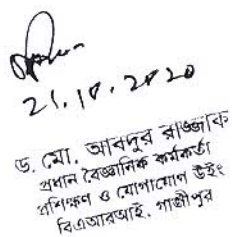 21.10.2020
ড. মো. আবদুর রাজ্জাক
প্রধান বৈজ্ঞানিক কর্মকর্তা
প্রশিক্ষণ ও যোগাযোগ উইং
বিএআরআই, গাজীপুর